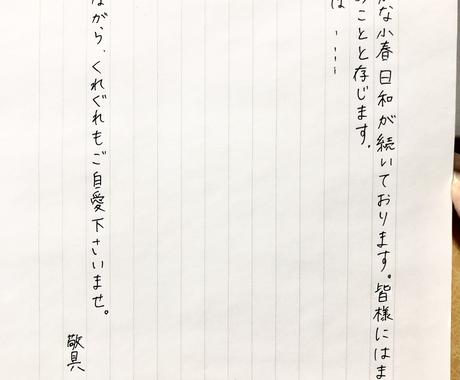 な小春日和が続いております。皆様にはま
のことと存じます。
は、…
ながら、くれぐれもご自愛下さいませ。
敬具